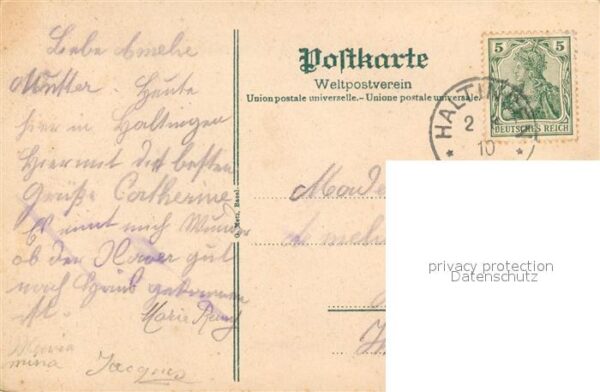 Liebe Amelie
Mutter. Heute
hier in Haltingen
Hiermit die besten
Grüße Catherine
Es nimt mich Wunder
ob der Xaver gut
nach Haus gekommen
Marie
Maria
mina
Jacques
G. Metz, Basel.
Postkarte
Weltpostverein
Union postale universelle.–Unione postale universale.
5 5
DEUTSCHES REICH
HALTINGEN
2
10
Made
Amelie
privacy protection
Datenschutz